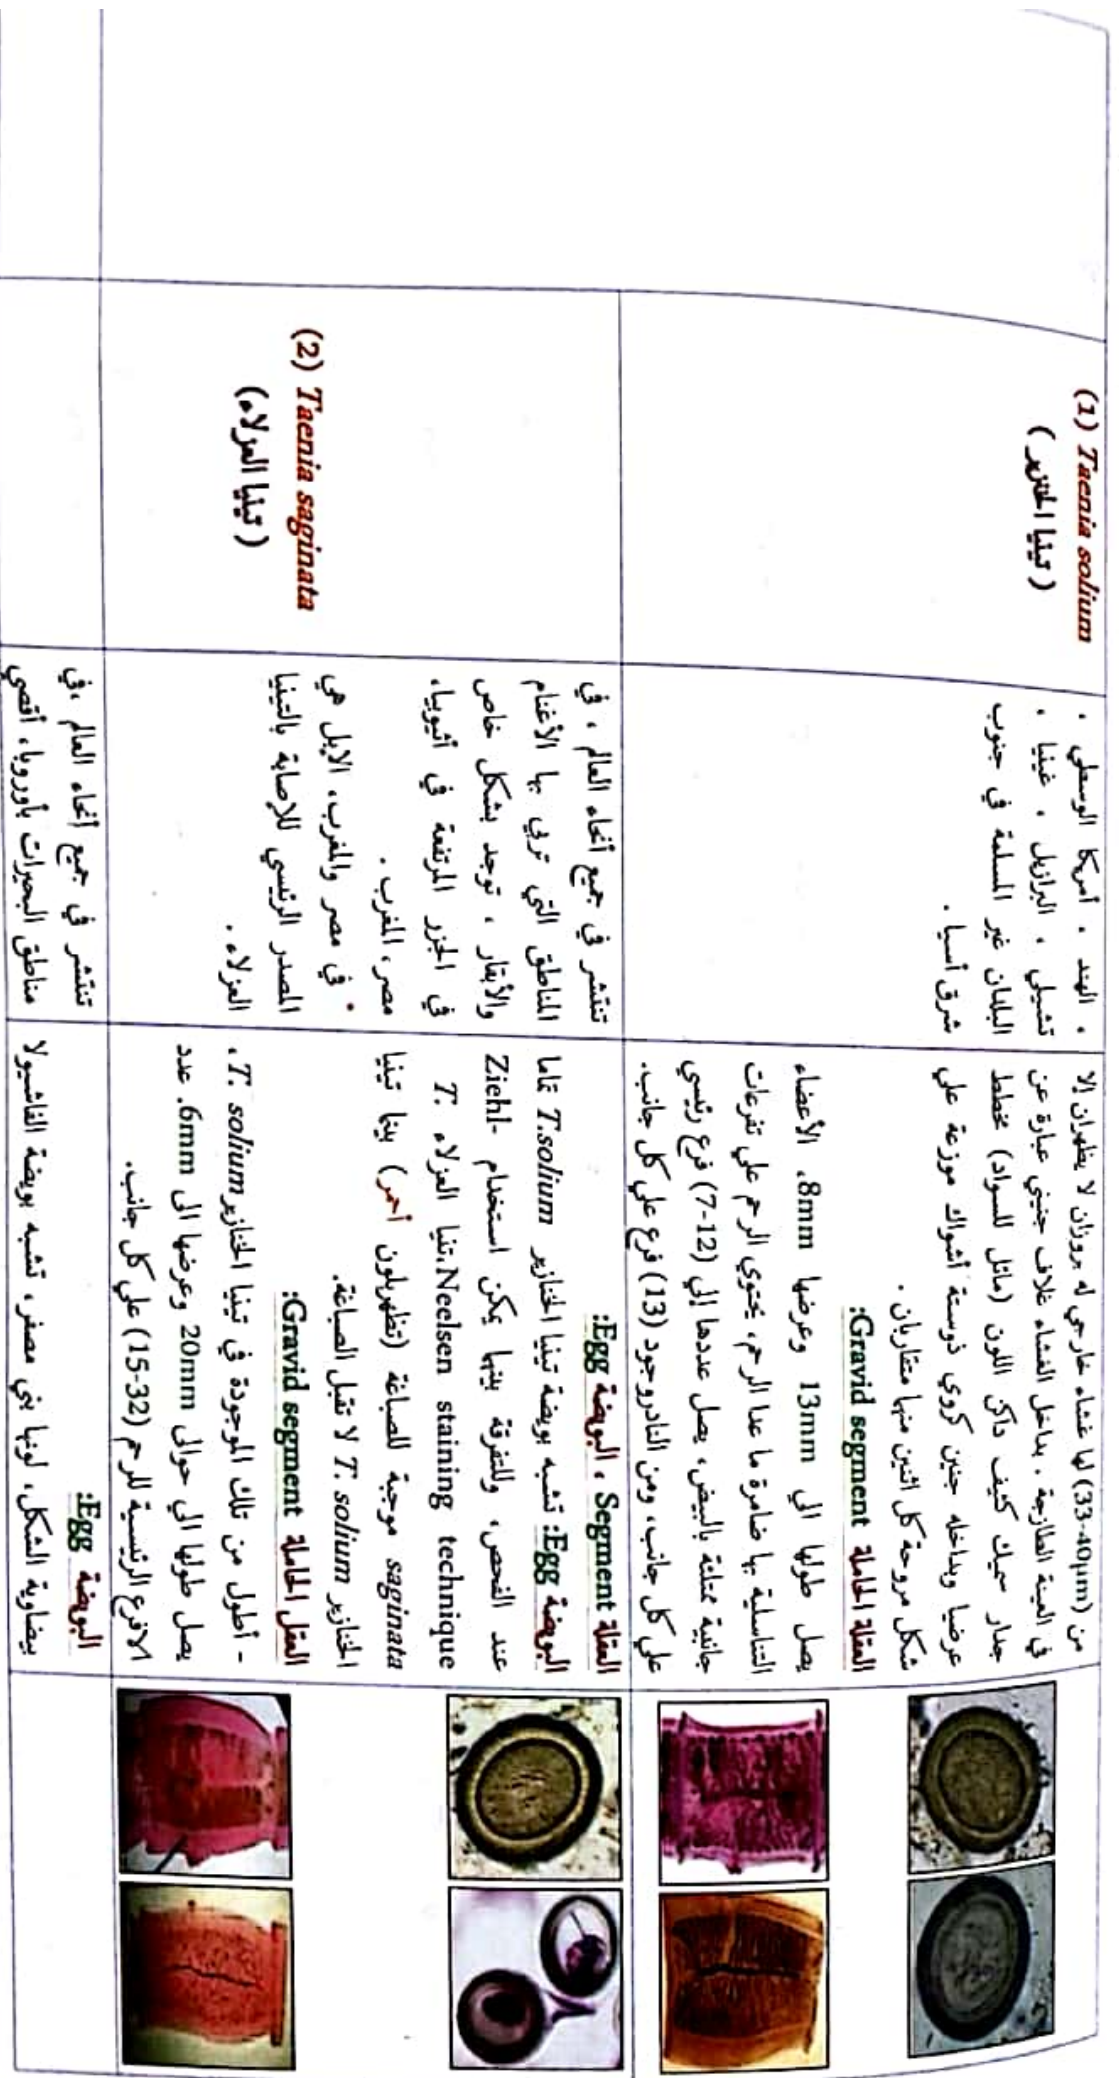 (1) Taenia solium
( تينيا الخنزير )
، الهند ، أمريكا الوسطي ،
تشيلي ، البرازيل ، غينيا ،
البلدان غير المسلمة في جنوب
شرق أسيا .
من (33-40µm) لها غشاء خارجي له بروزان لا يظهران إلا
في العينة الطازجة ، بداخل الغشاء غلاف جنيني عبارة عن
جدار سميك كثيف داكن اللون (مائل للسواد) مخطط
عرضيا وبداخله جنين كروي ذوستة أشواك موزعة علي
شكل مروحة كل اثنين منها متقاربان .
العقلة الحاملة Gravid segment:
يصل طولها الي 13mm وعرضها 8mm. الأعضاء
التناسلية بها ضامرة ما عدا الرحم، يحتوي الرحم علي تفرعات
جانبية ممتلئة بالبيض، يصل عددها إلي (7-12) فرع رئيسي
علي كل جانب، ومن النادر وجود (13) فرع علي كل جانب.
(2) Taenia saginata
( تينيا العزلاء)
تنتشر في جميع أنحاء العالم ، في
المناطق التي تربي بها الأغنام
والأبقار ، توجد بشكل خاص
في الجزر المرتفعة في أثيوبيا،
مصر، المغرب .
• في مصر والمغرب، الابل هي
المصدر الرئيسي للإصابة بالتينيا
العزلاء .
العقلة Segment ، البويضة Egg:
البويضة Egg: تشبه بويضة تينيا الخنازير T.solium تماما
عند الفحص، وللتفرقة بينهما يمكن استخدام Ziehl-
Neelsen staining technique.تنيا العزلاء T.
saginata موجبة للصباغة (تظهربلون أحمر) بينما تينيا
الخنازير T. solium لا تقبل الصباغة.
العقل الحاملة Gravid segment:
- أطول من تلك الموجودة في تينيا الخنازيرT. solium ،
يصل طولها الي حوالى 20mm وعرضها الى 6mm. عدد
الافرع الرئيسية للرحم (15-32) علي كل جانب.
تنتشر في جميع أنحاء العالم ،في
مناطق البحيرات بأوروبا، أقصي
البويضة Egg:
بيضاوية الشكل، لونها بني مصفر، تشبه بويضة الفاشيولا